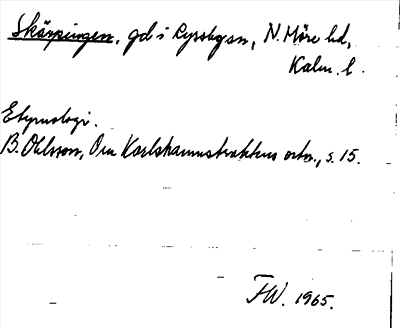 Skärpingen, gd i Ryssbysn, N. Möre hd,
Kalm. l.
Etymologi.
B. Ohlsson, Om Karlshamnstraktens ortn., s. 15.
FW. 1965.